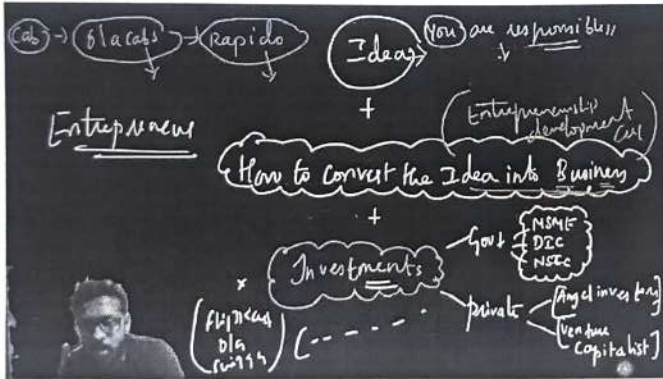 Cab → Ola cabs → Rapido
Idea → You are responsible
+
Entrepreneur
(Entrepreneurship development Cell)
How to convert the Idea into Business
+
Investments
Govt
MSME
DIC
NSIC
private
[Angel investors]
[Venture Capitalist]
x
(flipkart
Ola
swiggy)